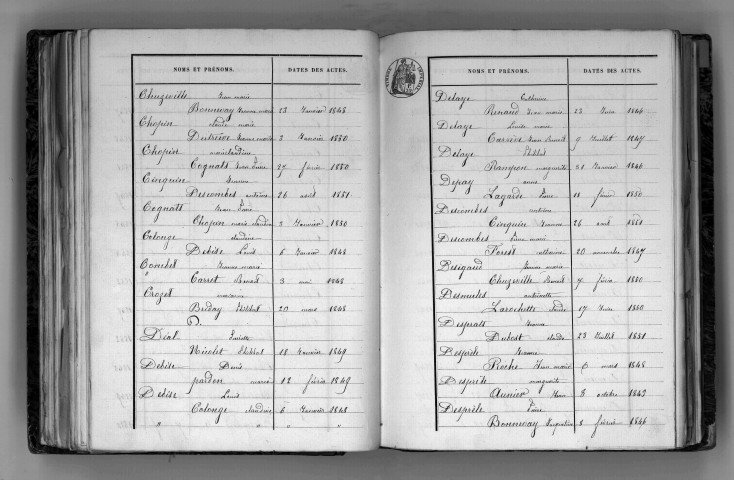 NOMS ET PRÉNOMS. DATES DES ACTES.
Chuzeville Jean marie
Bonnway Jeanne marie 23 Janvier 1848
Chopin claude marie
Dutrève Jeanne marie 2 Janvier 1850
Chopin marie claudine
Cognats Jean Pierre 27 février 1850
Cinquin Jeanne
Descombes antoine 26 août 1851
Cognats Jean Pierre
Chopin marie claudine 3 Janvier 1850
Colonge claudine
Debise Louis 6 Janvier 1848
Conchet Jeanne marie
Carret Benoit 3 mai 1848
Crozet
Briday Philibert 20 mars 1848
D.
Déal Pierrette
Nicolet Philibert 18 Janvier 1849
Debise Denis
Jardon marie 12 février 1849
Debise Louis
Colonge claudine 6 Janvier 1848
" " "
NOMS ET PRÉNOMS. DATES DES ACTES.
Delaye Catherine
Renaud Jean marie 23 Juin 1846
Delaye Louise marie
Carrière Jean Benoit 9 Juillet 1847
Delaye Philibert
Rampon marguerite 21 Janvier 1846
Depay anne
Lagarde Pierre 11 février 1850
Descombes antoine
Cinquin Jeanne 26 août 1851
Descombes Pierre marie
Forest catherine 20 novembre 1847
Desigaud Jeanne marie
Chuzeville Benoit 7 février 1850
Desmules antoinette
Larochette claude 17 Juin 1850
Desprats Jeanne
Dubost claude 23 Juillet 1851
Desprèle Jeanne
Proche Jean marie 6 mars 1848
Desprèle marguerite
Aunier Jean 3 octobre 1849
Desprèle Pierre
Bonnway 8 février 1846